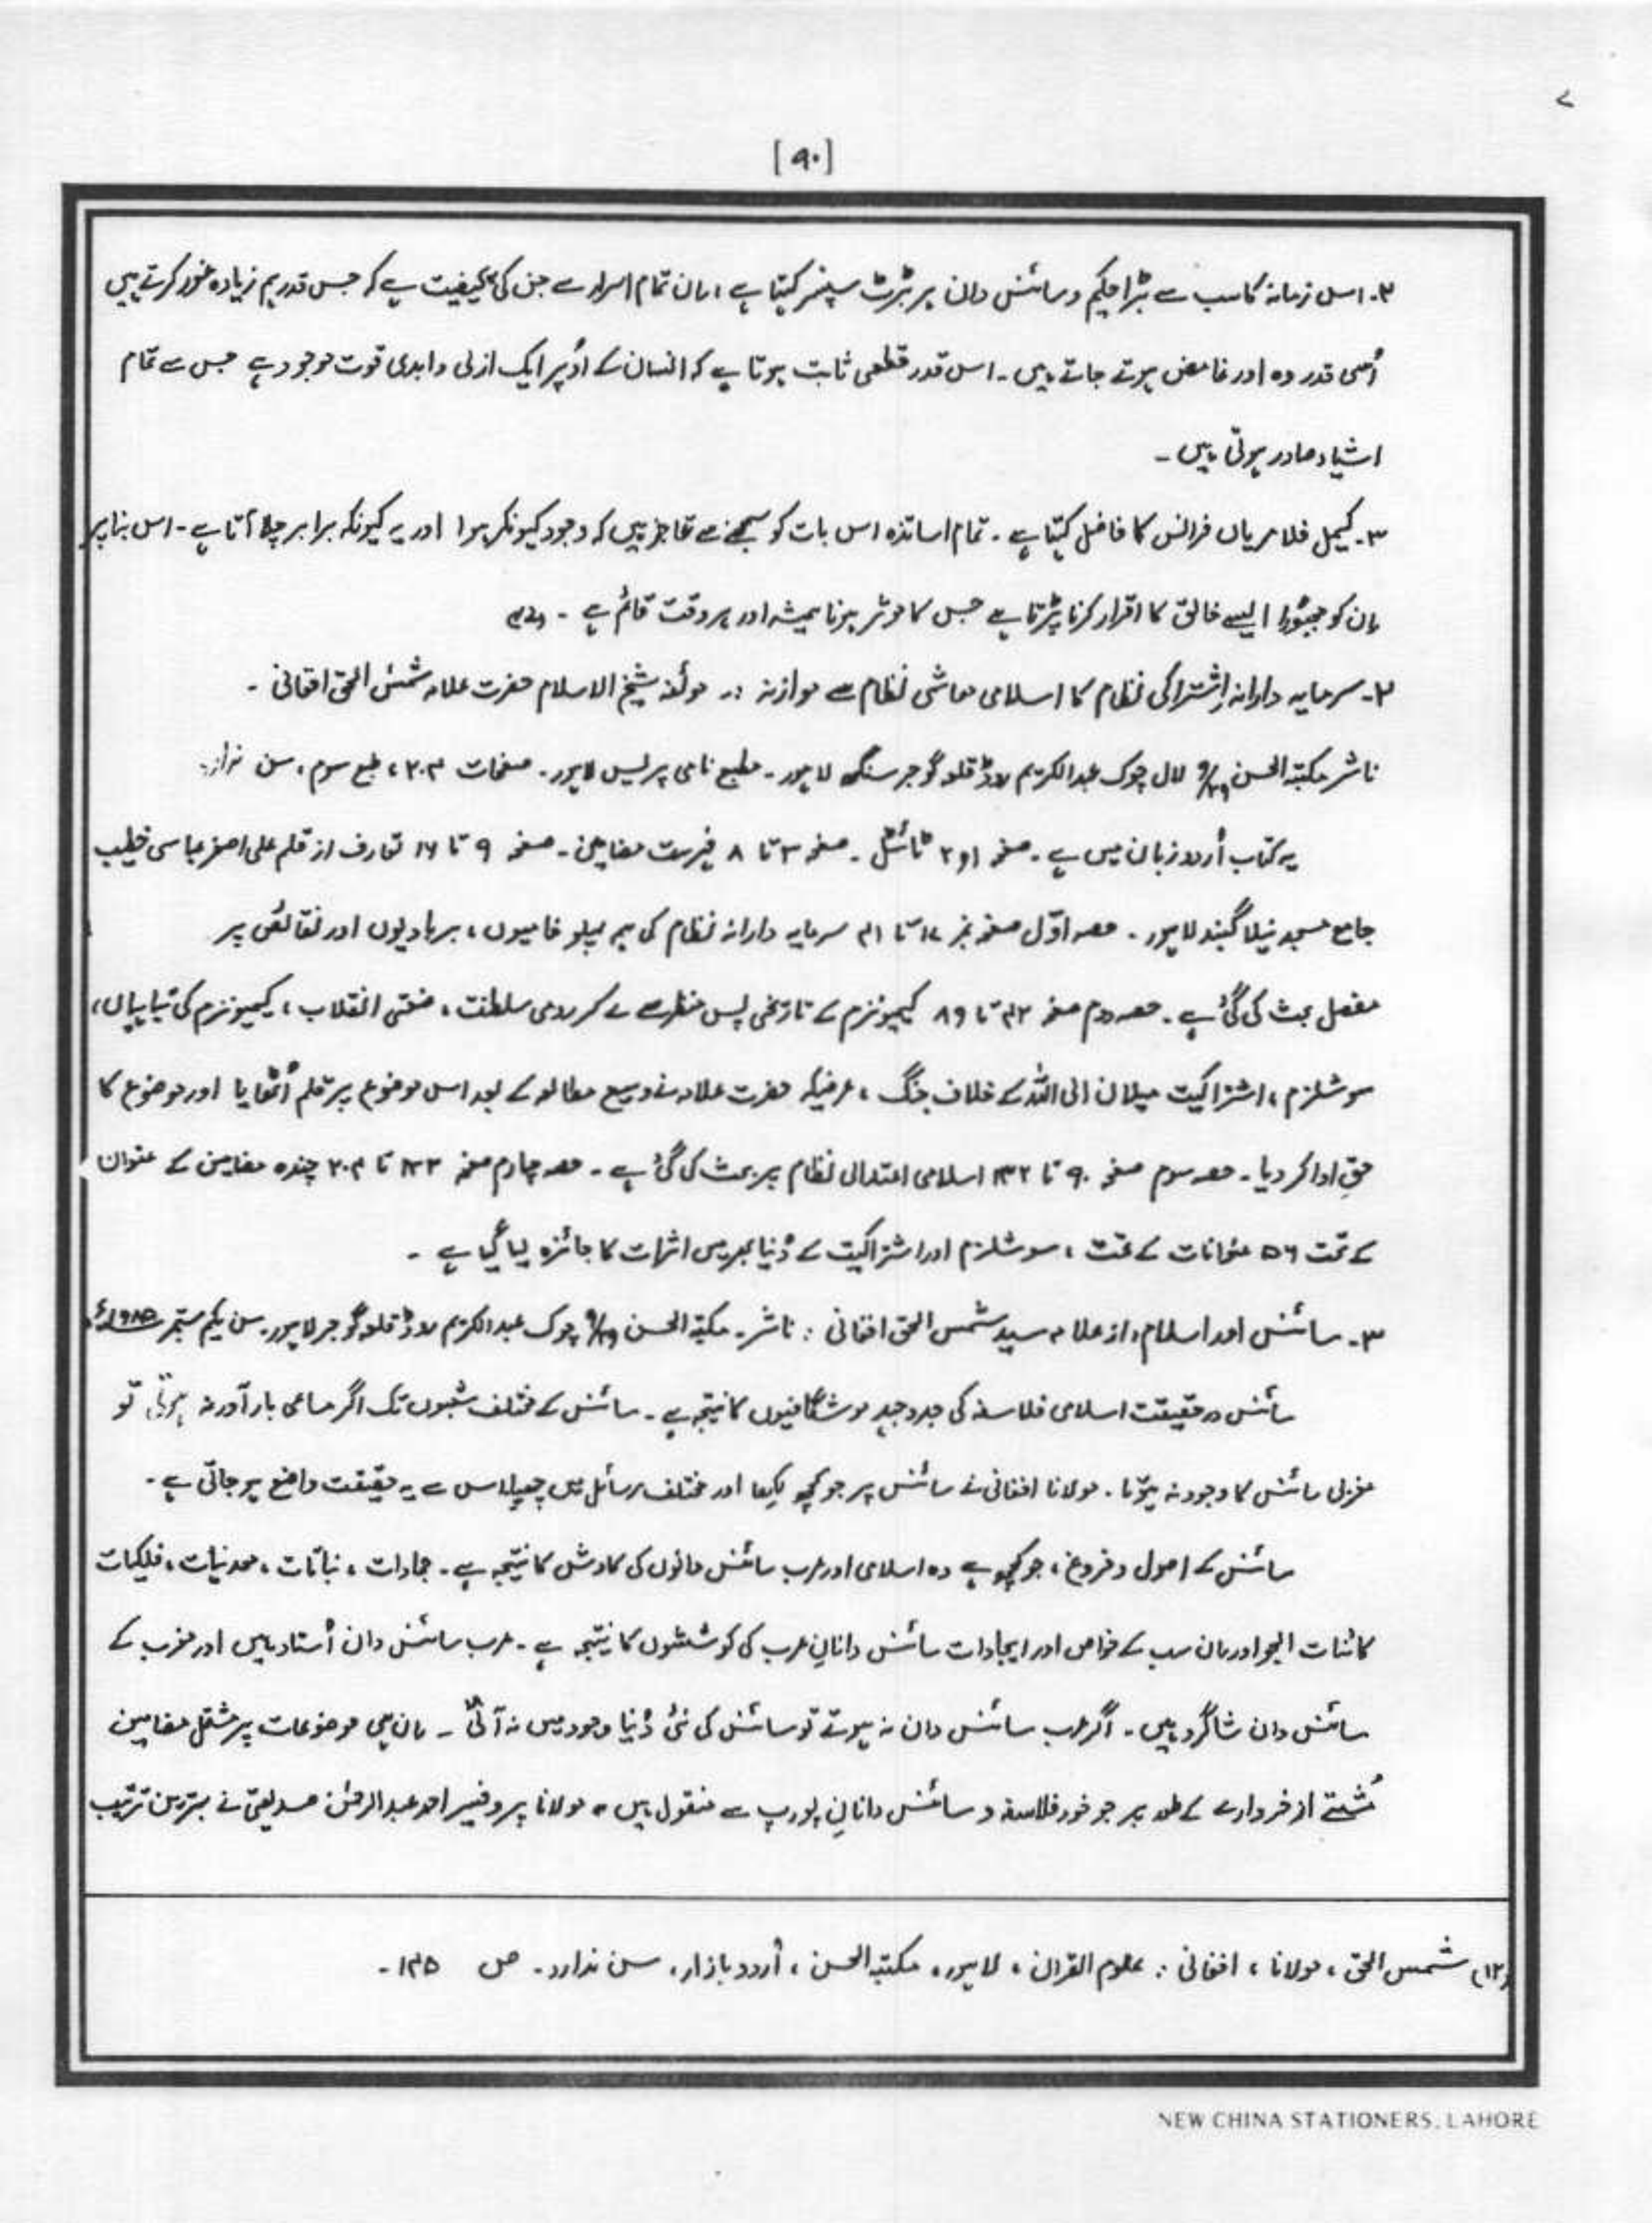 [۹۰]
۲۔ اس زمانہ کا سب سے بڑا حکیم و سائنس دان ہربرٹ سپنسر کہتا ہے، ان تمام اسرار سے جن کی یہ کیفیت ہے کہ جس قدر ہم زیادہ غور کرتے ہیں
اُسی قدر وہ اور غامض ہوتے جاتے ہیں۔ اس قدر قطعی ثابت ہوتا ہے کہ انسان کے اُوپر ایک ازلی و ابدی قوت موجود ہے جس سے تمام
اشیاء صادر ہوتی ہیں۔
۳۔ کیمل فلامریاں فرانس کا فاضل کہتا ہے۔ تمام اساتذہ اس بات کو سمجھنے سے عاجز ہیں کہ وجود کیونکر ہوا اور یہ کیونکر برابر چلا آتا ہے۔ اس بنا پر
ان کو مجبوراً ایسے خالق کا اقرار کرنا پڑتا ہے جس کا موثر ہونا ہمیشہ اور ہر وقت قائم ہے۔
۲۔ سرمایہ دارانہ اشتراکی نظام کا اسلامی معاشی نظام سے موازنہ :۔ مولفہ شیخ الاسلام حضرت علامہ شمس الحق افغانی ۔
ناشر مکتبۃ الحسن ۹/۲۹ لال چوک عبدالکریم روڈ قلعہ گوجر سنگھ لاہور۔ مطبع نامی پریس لاہور۔ صفحات ۲۰۴، طبع سوم، سن ندارد
یہ کتاب اُردو زبان میں ہے۔ صفحہ ۱ و ۲ ٹائٹل۔ صفحہ ۳ تا ۸ فہرست مضامین۔ صفحہ ۹ تا ۱۶ تعارف از قلم علی اصغر عباسی خطیب
جامع مسجد نیلا گنبد لاہور۔ حصہ اوّل صفحہ نمبر ۱۷ تا ۴۱ سرمایہ دارانہ نظام کی ہمہ پہلو خامیوں، بربادیوں اور نقائص پر
مفصل بحث کی گئی ہے۔ حصہ دوم صفحہ ۴۲ تا ۸۹ کیمونزم کے تاریخی پس منظر سے لے کر رومی سلطنت، صنعتی انقلاب، کیمیونزم کی تباہیاں،
سوشلزم، اشتراکیت میلان الی اللہ کے خلاف جنگ، غرضیکہ حضرت علامہ نے وسیع مطالعہ کے بعد اس موضوع پر قلم اُٹھایا اور موضوع کا
حق ادا کر دیا۔ حصہ سوم صفحہ ۹۰ تا ۱۳۲ اسلامی اعتدالی نظام پر بحث کی گئی ہے۔ حصہ چہارم صفحہ ۱۳۳ تا ۲۰۴ چندہ مضامین کے عنوان
کے تحت ۵۶ عنوانات کے تحت، سوشلزم اور اشتراکیت کے دُنیا بھر میں اثرات کا جائزہ لیا گیا ہے ۔
۳۔ سائنس اور اسلام، از علامہ سید شمس الحق افغانی : ناشر۔ مکتبۃ الحسن ۹/۲۹ چوک عبدالکریم روڈ قلعہ گوجر لاہور۔ سن یکم ستمبر ۱۹۸۵ء
سائنس درحقیقت اسلامی فلاسفہ کی جدوجہد موشگافیوں کا نتیجہ ہے۔ سائنس کے مختلف شعبوں تک اگر مساعی بارآور نہ ہوتی تو
مغربی سائنس کا وجود نہ ہوتا۔ مولانا افغانی نے سائنس پر جو کچھ لکھا اور مختلف رسائل میں چھپا اس سے یہ حقیقت واضح ہو جاتی ہے۔
سائنس کے اصول و فروغ، جو کچھ ہے وہ اسلامی اور عرب سائنس دانوں کی کاوش کا نتیجہ ہے۔ جمادات، نباتات، معدنیات، فلکیات
کائنات الجو اور ان سب کے خواص اور ایجادات سائنس دانانِ عرب کی کوششوں کا نتیجہ ہے۔ عرب سائنس دان اُستاد ہیں اور مغرب کے
سائنس دان شاگرد ہیں۔ اگر عرب سائنس دان نہ ہوتے تو سائنس کی نئی دُنیا وجود میں نہ آتی ۔ ان ہی موضوعات پر مشتمل مضامین
مُشتے از خروارے کے طور پر جو خود فلاسفہ و سائنس دانانِ یورپ سے منقول ہیں، مولانا پروفیسر احمد عبدالرحمٰن صدیقی نے بہترین ترتیب
(۱۲) شمس الحق، مولانا، افغانی : علوم القرآن، لاہور، مکتبۃ الحسن، اُردو بازار، سن ندارد۔ ص ۱۴۵۔
NEW CHINA STATIONERS, LAHORE